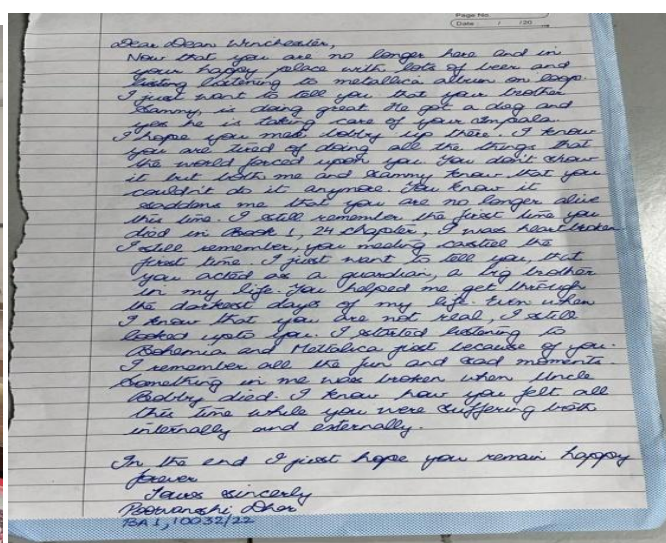 Page No.
Date / /20
Dear Dean Winchester,
Now that you are no longer here and in
your happy place with lots of beer and
listening to metallica album on loop.
I just want to tell you that your brother
Sammy, is doing great He got a dog and
yes he is taking care of your Impala.
I hope you meet bobby up there. I know
you are tired of doing all the things that
the world forced upon you. You don't show
it but both me and Sammy know that you
couldn't do it anymore. You know it
saddens me that you are no longer alive
this time. I still remember the first time you
died in Book 1, 24 chapter, I was heartbroken
I still remember, you meeting casteil the
first time. I just want to tell you, that
you acted as a guardian, a big brother
in my life. You helped me get through
the darkest days of my life. Even when
I know that you are not real, I still
looked upto you. I started listening to
Bohemia and Mettalica just because of you.
I remember all the fun and sad moments.
Something in me was broken when Uncle
Bobby died. I know how you felt all
this time while you were suffering both
internally and externally.
In the end I just hope you remain happy
forever
Yours sincerly
Poorvanshi Dhar
BA I, 10032/22